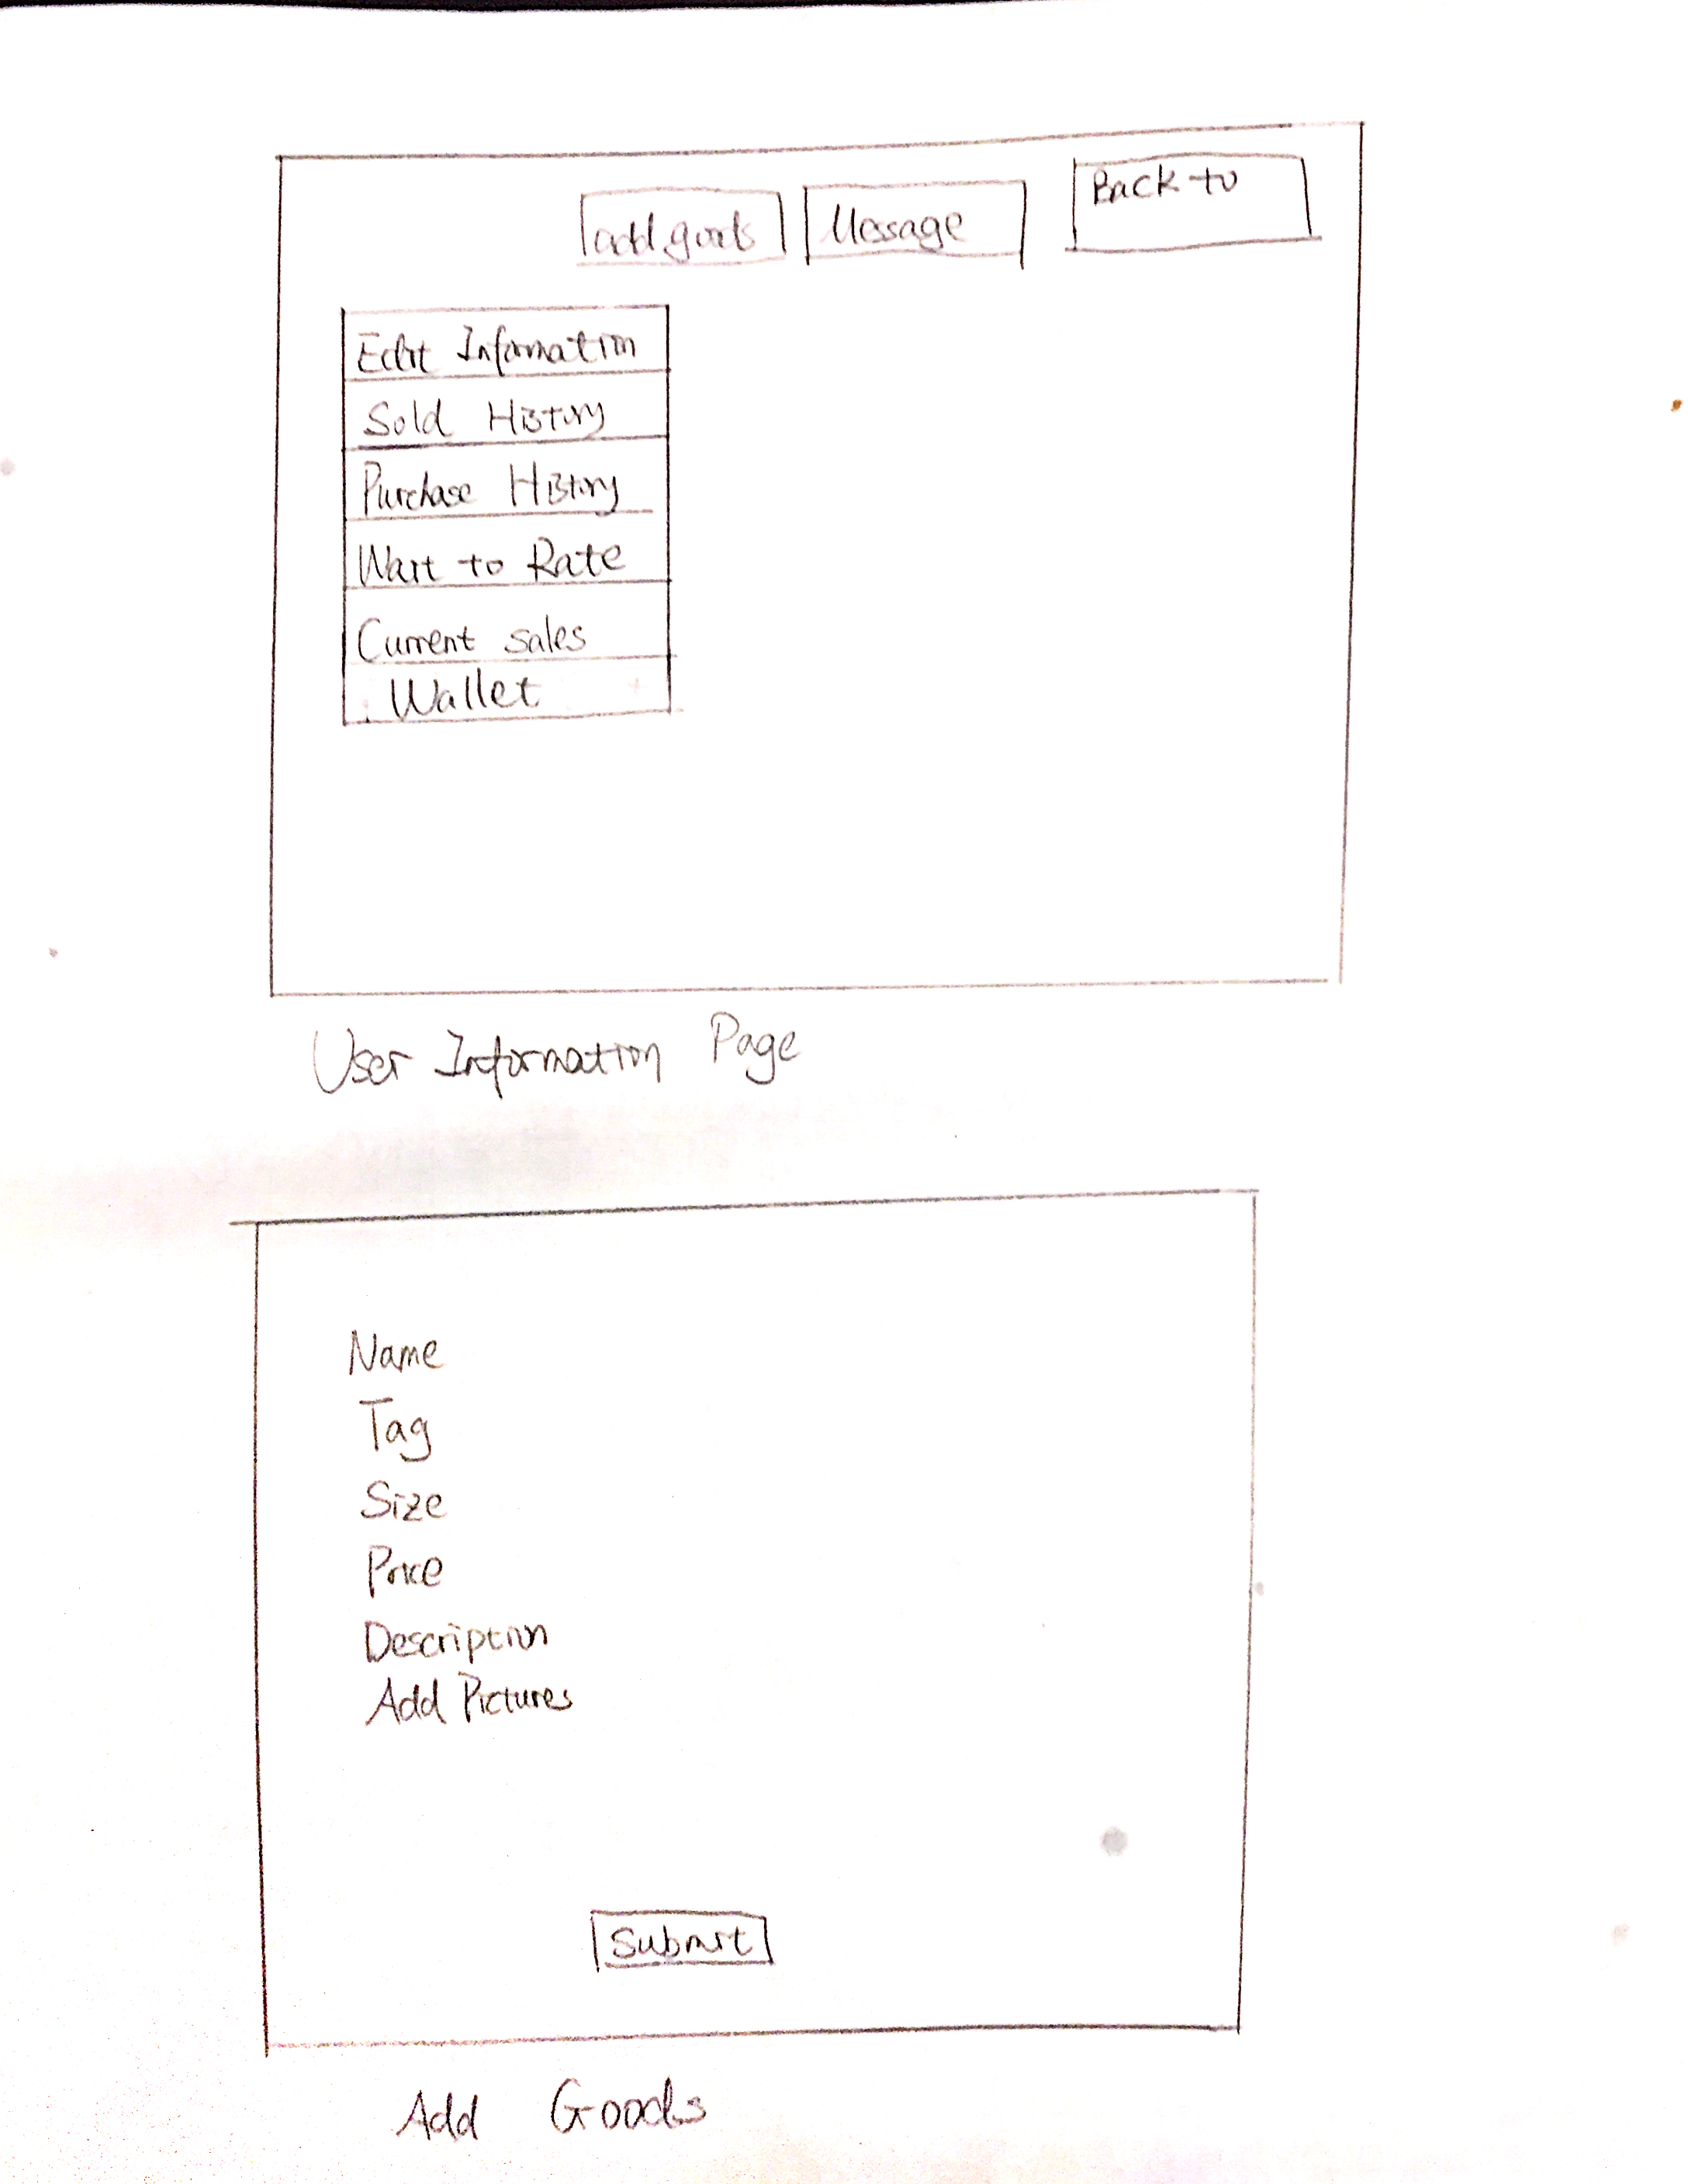 add goods Message Back to
Edit Information
Sold History
Purchase History
Wait to Rate
Current sales
Wallet
User Information Page
Name
Tag
Size
Price
Description
Add Pictures
Submit
Add Goods